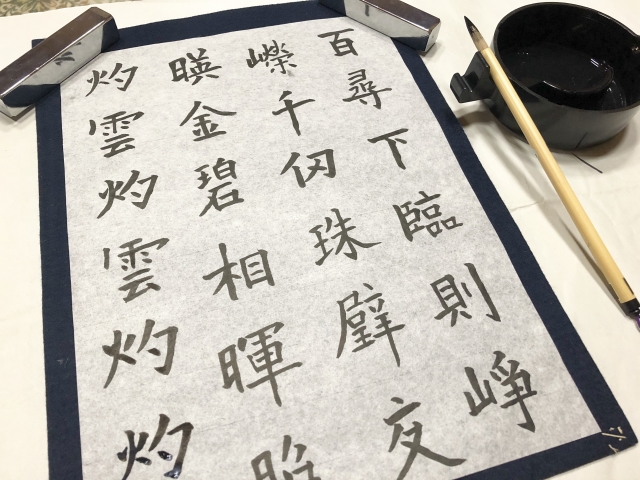 百尋下臨則崢
嶸千仞珠璧交
暎金碧相暉
灼雲灼雲灼灼